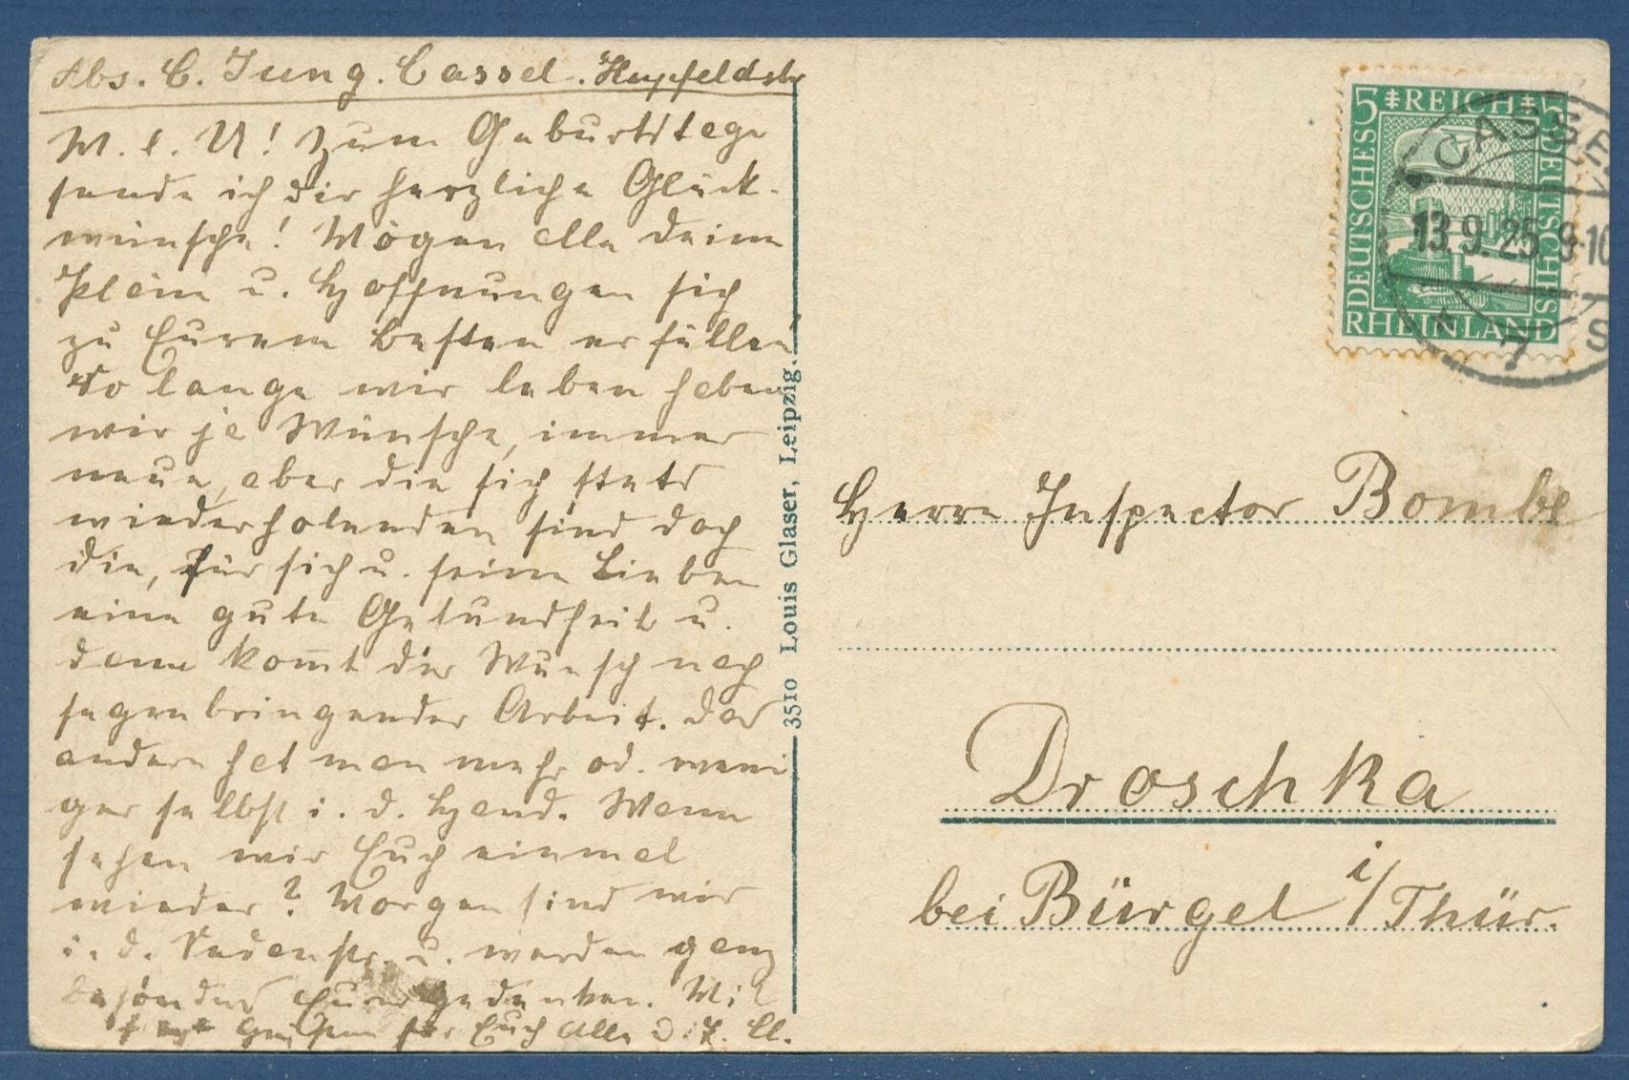 Abs. C. Jung. Cassel. Hupfeldstr
M. l. U! Zum Geburtstage
sende ich dir herzliche Glück-
wünsche! Mögen alle deine
Pläne u. Hoffnungen sich
zu Eurem Besten erfüllen
So lange wir leben haben
wir ja Wünsche, immer
neue, aber die sich stets
wiederholenden sind doch
die, für sich u. seine Lieben
eine gute Gesundheit u.
dann kom̅t der Wunsch nach
segenbringender Arbeit. Das
andere hat man mehr od. weni
ger selbst i. d. Hand. Wann
sehen wir Euch einmal
wieder? Morgen sind wir
i. d. u. werden ganz
besonders Eurer gedenken. Mit
Grüßen für Euch Alle
3510 Louis Glaser, Leipzig.
5 REICH 5
DEUTSCHES
DEUTSCHES
RHEINLAND
CASSEL
13.9.25.9-10
7
Herrn Inspector Bombe
Droschka
bei Bürgel i/Thür.